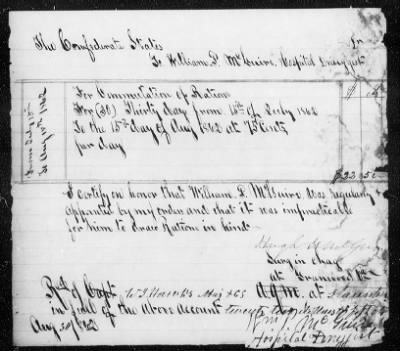 The Confederate States Dr
To William P. McGuire, Hospital Druggist
From July 15th
To Aug 15th 1862
For Commutation of Rations $ c
For (30) Thirty days from 15th of July 1862
To the 15th day of Aug 1862 at 75 cents
per day
$22.50
I certify on honor that William P. McGuire was regularly
appointed by my order and that it was impracticable
for him to draw Rations in kind.
Surg in charge
at
Recd of Capt Maj & CS A.Q.M. at
in full of the above account twenty two dollars
Aug 30 1862 Wm P. McGuire
Hospital